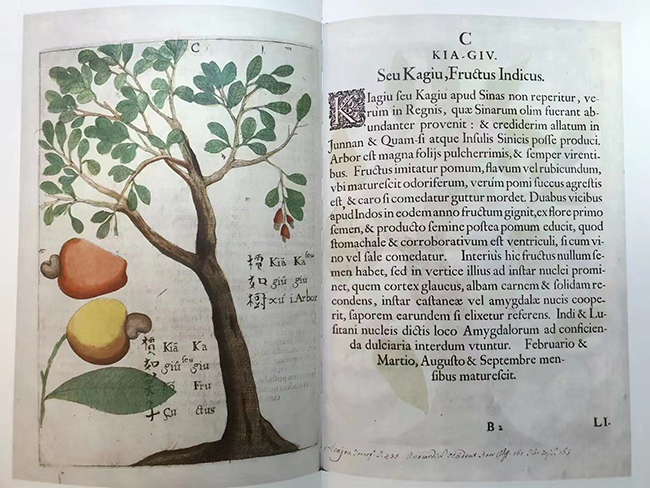 C
Kiā Ka
如 giû seu giu
樹 xú i.Arbor
Kiā Ka
如 giû seu giu
Fru
子 çu ctus
C
KIA-GIV.
Seu Kagiu, Fructus Indicus.
KIagiu ſeu Kagiu apud Sinas non reperitur, ve-
rùm in Regnis, quæ Sinarum olim fuerant ab-
undanter provenit : & crediderim allatum in
Junnan & Quam-ſi atque Inſulis Sinicis poſſe produci.
Arbor eſt magna folijs pulcherrimis, & ſemper virenti-
bus. Fructus imitatur pomum, flavum vel rubicundum,
vbi matureſcit odoriferum, verùm pomi ſuccus agreſtis
eſt, & caro ſi comedatur guttur mordet. Duabus vicibus
apud Indos in eodem anno fructum gignit, ex flore primo
ſemen, & producto ſemine poſtea pomum educit, quod
ſtomachale & corroborativum eſt ventriculi, ſi cum vi-
no vel ſale comedatur. Interiùs hic fructus nullum ſe-
men habet, ſed in vertice illius ad inſtar nuclei promi-
net, quem cortex glaucus, albam carnem & ſolidam re-
condens, inſtar caſtaneæ vel amygdalæ nucis coope-
rit, ſaporem earundem ſi elixetur referens. Indi & Lu-
ſitani nucleis dictis loco Amygdalorum ad conficien-
da dulciaria interdum vtuntur. Februario &
Martio, Auguſto & Septembre men-
ſibus matureſcit.
B 2 LI.